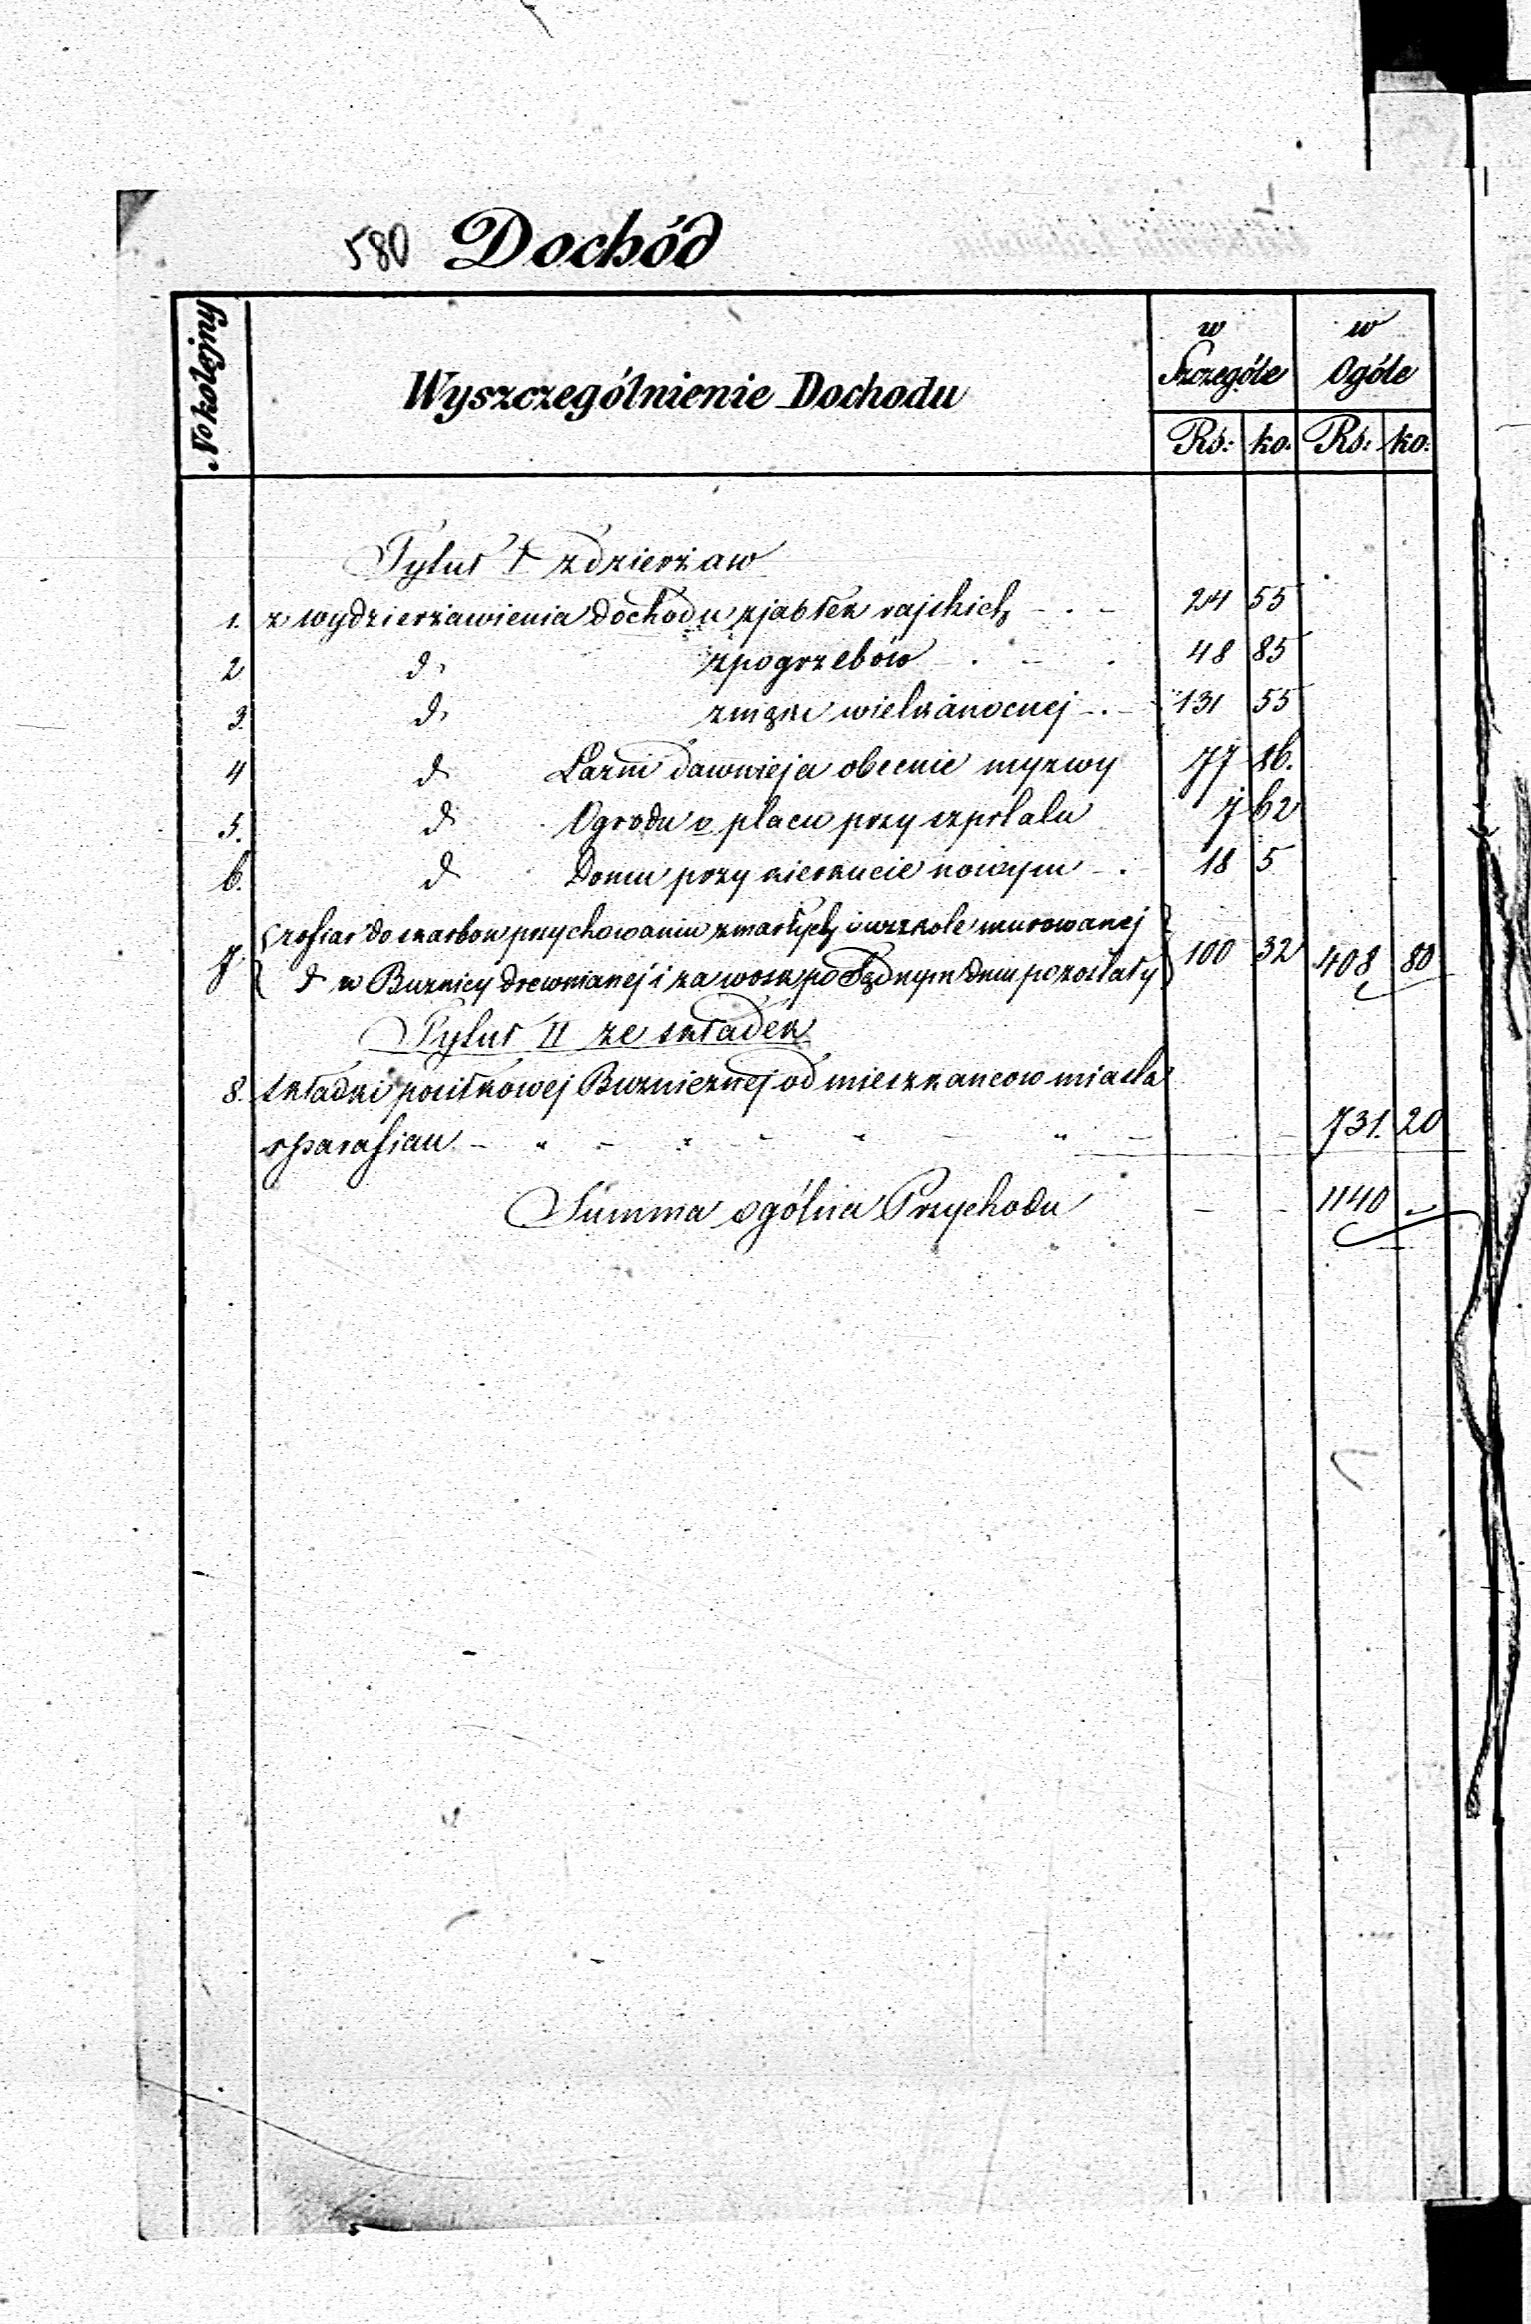 580 Dochód
No kolejny
Wyszczególnienie Dochodu
w Szczególe
w Ogóle
Rs: ko. Rs: ko:
Tytuł I z dzierżaw
1. z wydzierżawienia dochodu z jabłek rajskich - . - 24 55
2 d. z pogrzebów . - . 48 85
3. d. z mąki wielkanocnej - . - 131 55
4 d. Łazni dawniej a obecnie mykwy 77 86.
5. d. Ogrodu v placu przy szpitalu 7 62
6. d. Domu przy kierkucie nowym - . 18 5
7. z ofiar do skarbon przy chowaniu zmarłych i w szkole murowanej
d w Buznicy drewnianej i za wosk po Sądnym dniu pozostały 100 32 408 80
Tytuł II ze składek
8. składki Buznicznej od mieszkancow miasta
i parafian - " - " - " - " - 731. 20
Summa ogólna Przychodu - - 1140 -